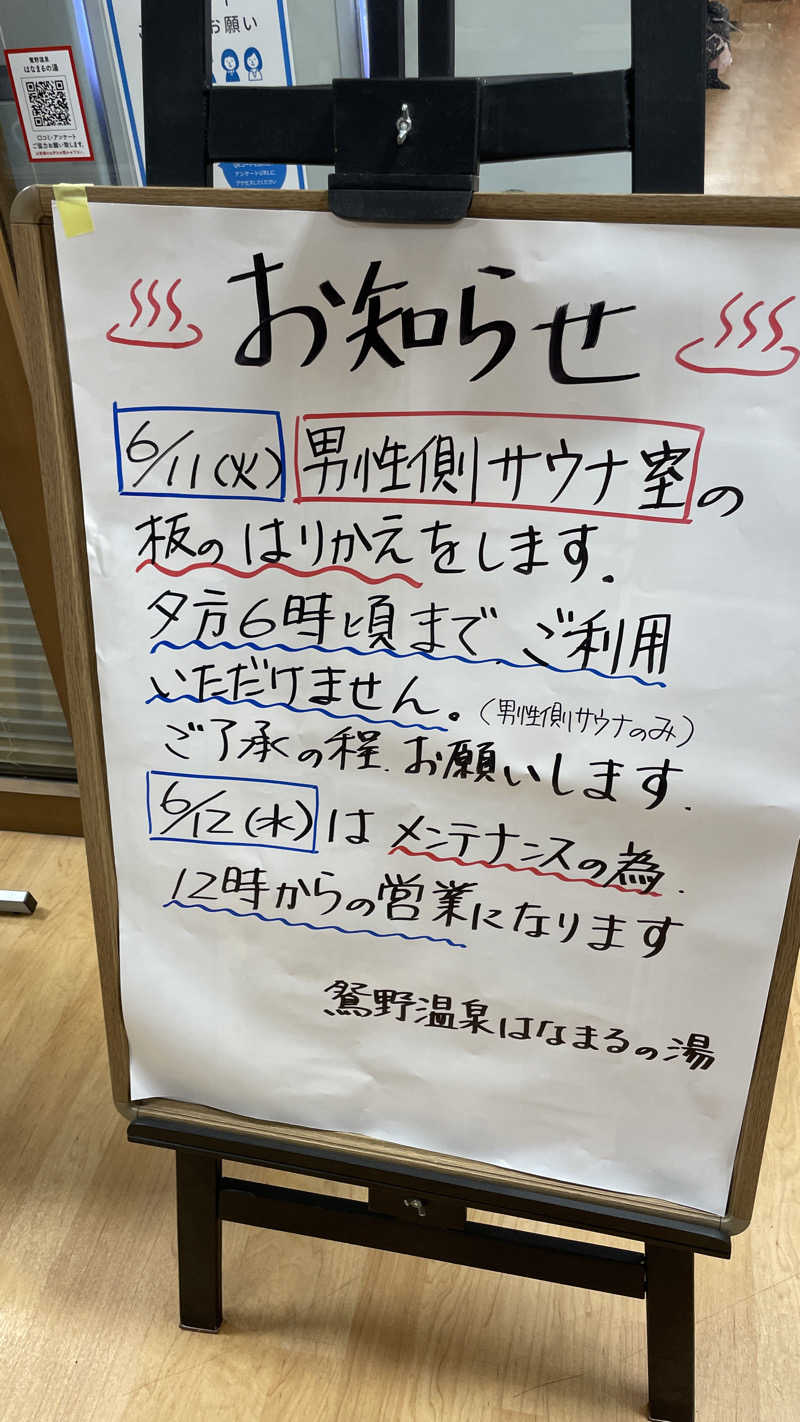 お願い
鴛野温泉
はなまるの湯
口コミ・アンケート
ご協力お願い致します。
アンケートURLに
アクセスしてください
お知らせ
6/11(火) 男性側サウナ室の
板のはりかえをします.
夕方6時頃まで、ご利用
いただけません。(男性側サウナのみ)
ご了承の程、お願いします.
6/12(水)は メンテナンスの為.
12時からの営業になります
鴛野温泉はなまるの湯